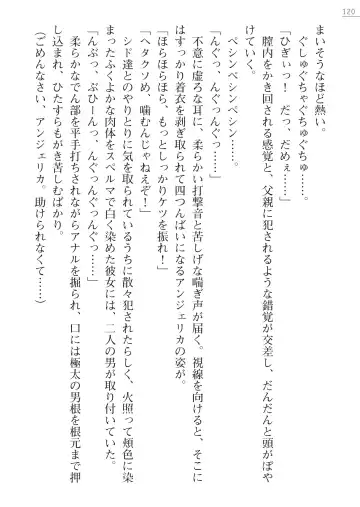 120
まいそうなほど熱い。
ぐしゅぐちゃぐちゅぐちゅ……。
「ひぎぃっ！　だっ、だめぇ……」
膣内をかき回される感覚と、父親に犯されるような錯覚が交差し、だんだんと頭がぼや
けていく。
ペシンペシンペシン……。
「んぐっ、んぐっんぐっ……」
不意に虚ろな耳に、柔らかい打撃音と苦しげな喘ぎ声が届く。視線を向けると、そこに
はすっかり着衣を剥ぎ取られて四つんばいになるアンジェリカの姿が。
「ほらほらほら、もっとしっかりケツを振れ！」
「ヘタクソめ、噛むんじゃねえぞ！」
シド達とのやりとりに気を取られているうちに散々犯されたらしく、火照って頬色に染
まったふくよかな肉体をスペルマで白く染めた彼女には、二人の男が取り付いていた。
「んぶっ、ぶひーんっ、んぐっんぐっ……」
柔らかなでん部を平手打ちされながらアナルを掘られ、口には極太の男根を根元まで押
し込まれ、ひたすらもがき苦しむばかり。
（ごめんなさい、アンジェリカ。助けられなくて……）